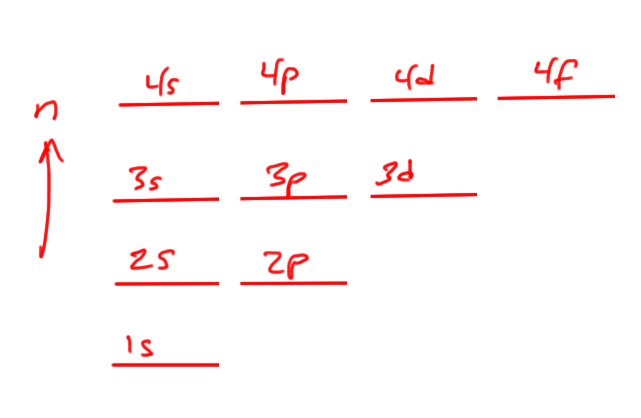 4s 4p 4d 4f
n
3s 3p 3d
2s 2p
1s